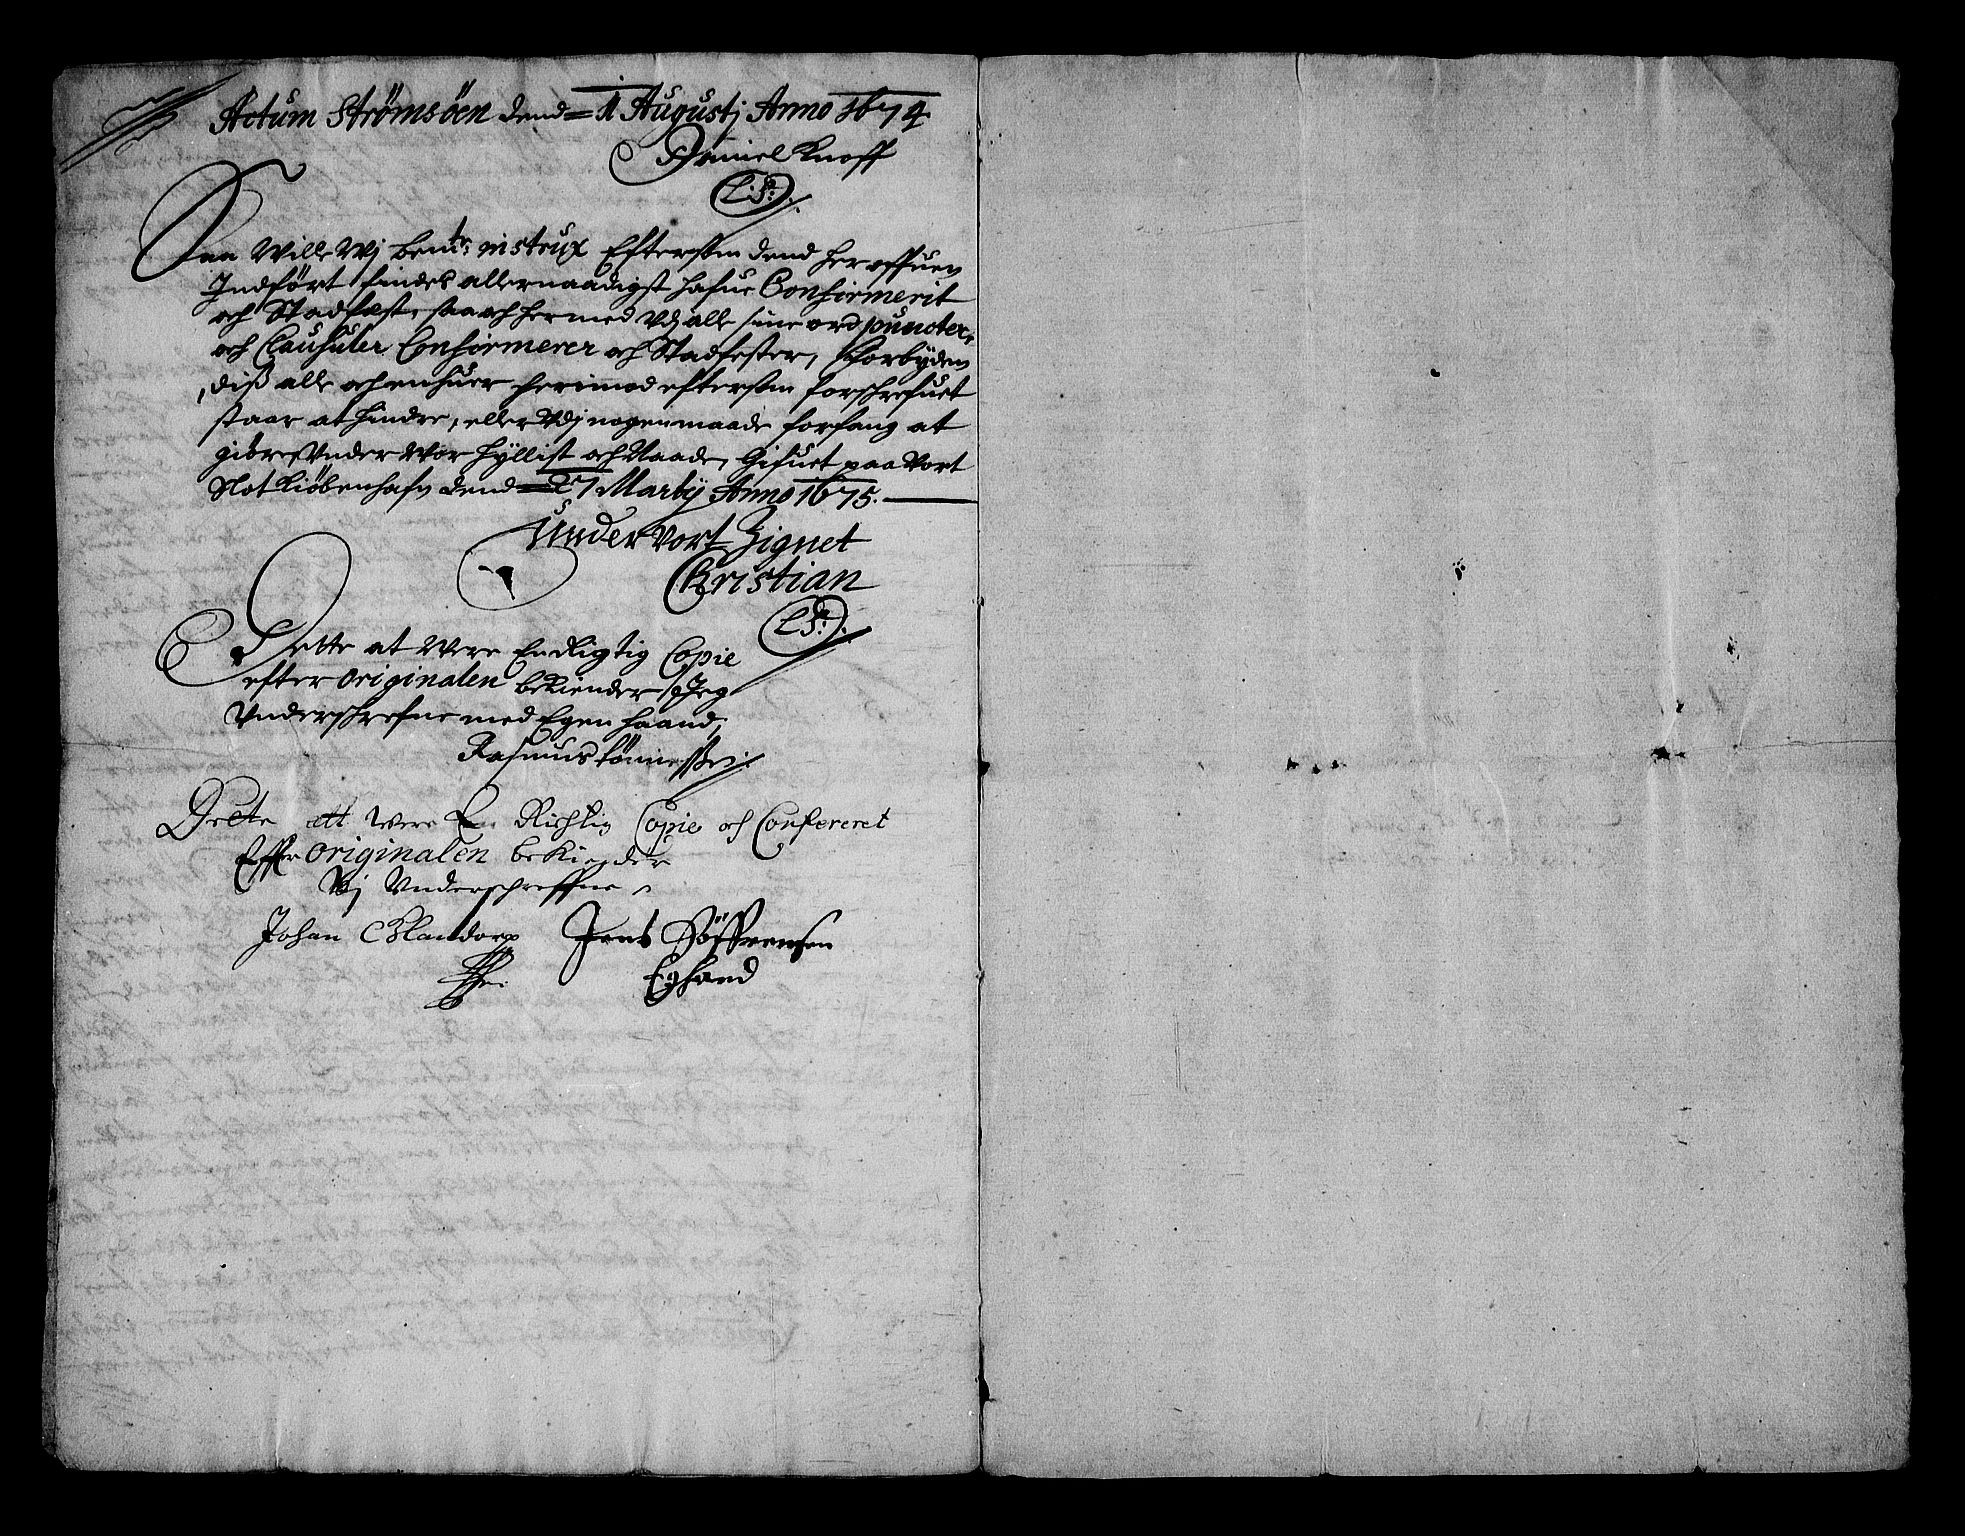 Actum Strømsöen dend 11 Augustj Anno 1674
Daniel Knoff
(L: S:)
Saa Wille Wj bemte: instrux Eftersom dend her offuen
Indført findes allernaadigst hafue Confirmerit
och Stadfæst, saa och hermed Vdj alle sine ord puncter,
och Clausuler Confirmerer och Stadfester, Forbyden
dis alle och enhuer herimod eftersom forschrefuet
staar at hindre, eller Vdj nogen maade forfang at
giöre, Vnder Wor hyllist och Naade, Gifuet paa Vort
Slot Kiöbenhafn dend 27 Martij Anno 1675.
Under Vort Zignet
Christian
(L: S:)
Dette at Were Endligtig Copie
efter originalen bekiender Jeg
Vnderschrefne med Egen haand,
Rasmus Tönnessen
Dette att were En Richtig Copie och Confereret
Effter originalen bekiender
Vj Vnderschreffne
Johan Blandorp Jens Söffrensen
Eghand